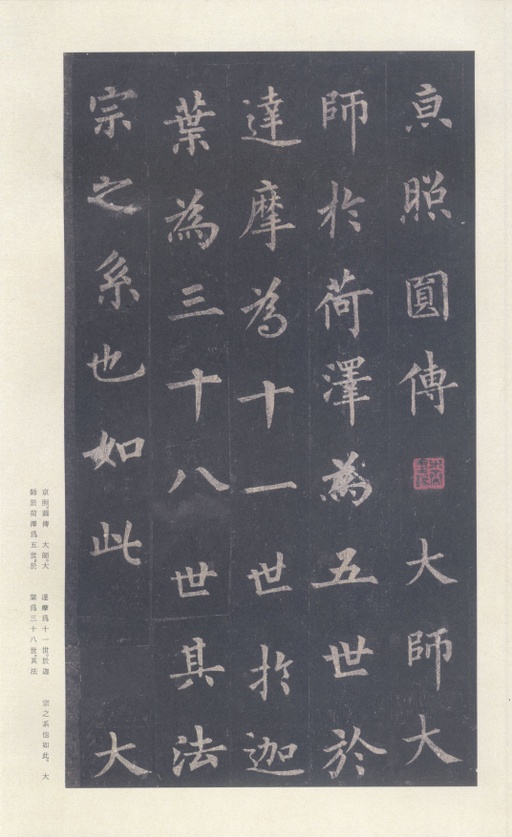 京照圓傳 大師大
師於荷澤為五世於
達摩為十一世於迦
葉為三十八世其法
宗之系也如此 大
京照。圓傳 大師。大
師於荷澤爲五世。於
達摩爲十一世。於迦
葉爲三十八世。其法
宗之系也如此。 大